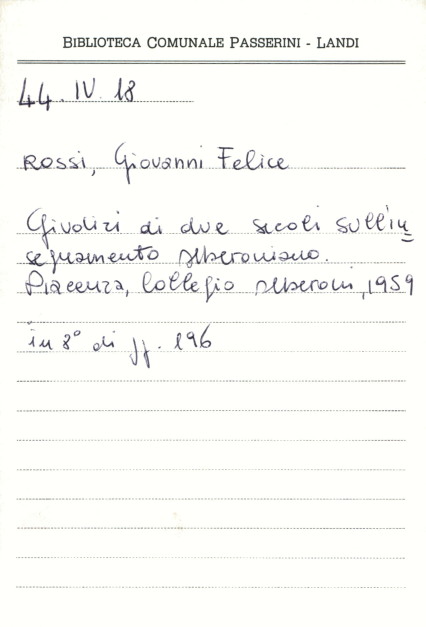 BIBLIOTECA COMUNALE PASSERINI - LANDI
44. IV. 18
Rossi, Giovanni Felice
Giudizi di due secoli sull'in=
segnamento alberoniano.
Piacenza, Collegio Alberoni, 1959
in 8° di pp. 196